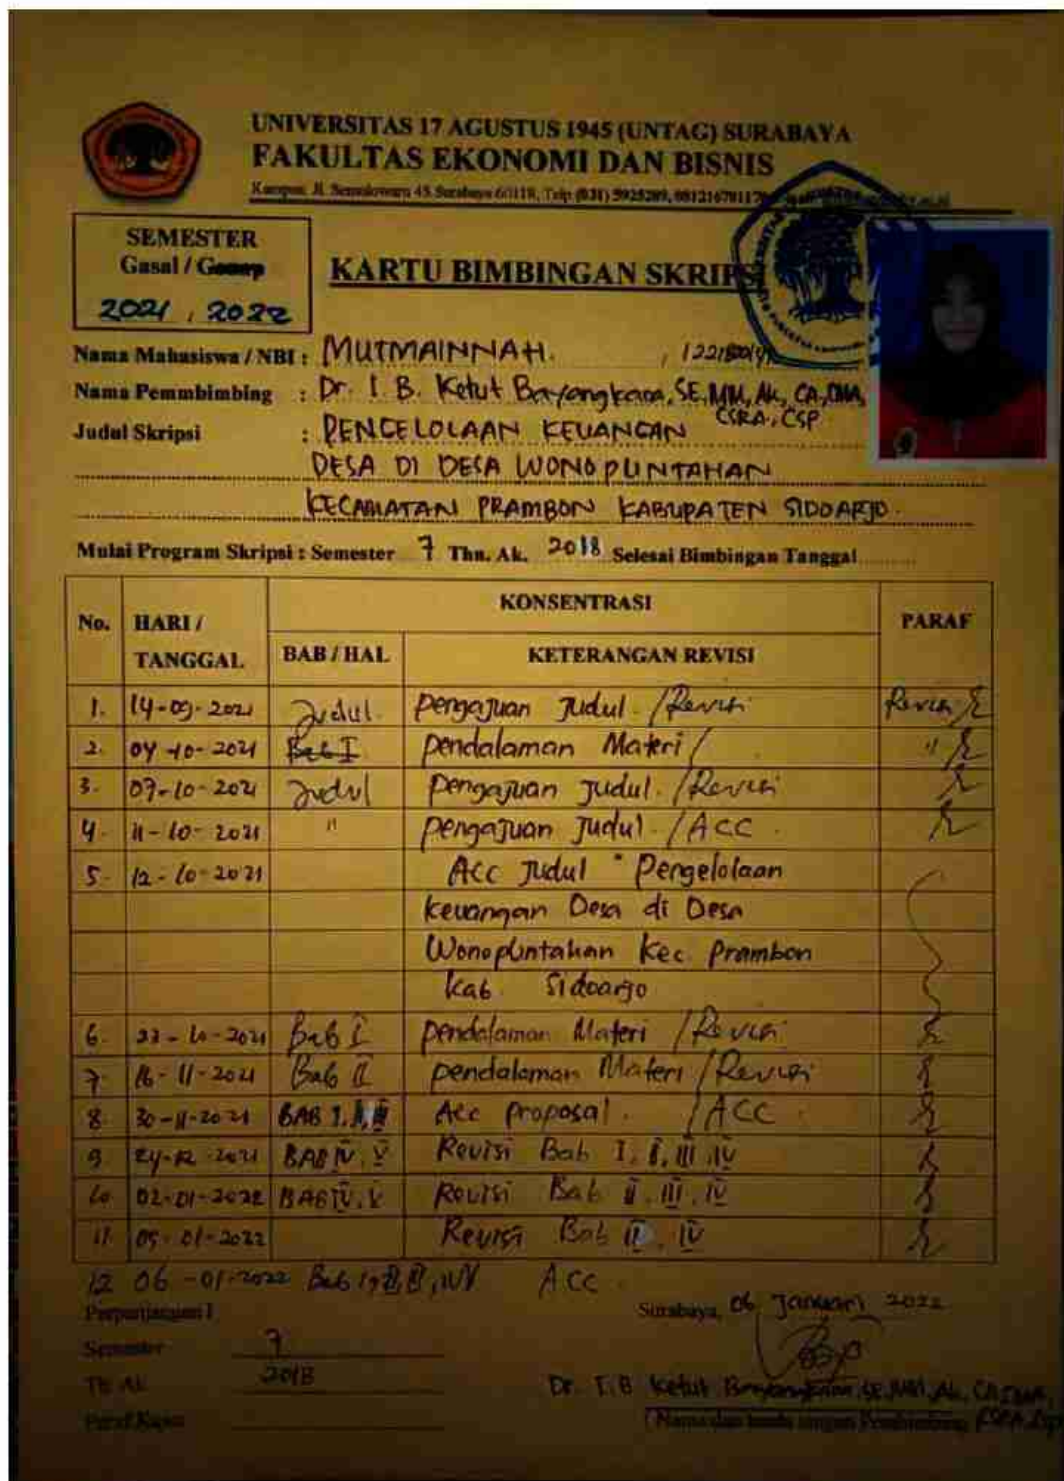 UNIVERSITAS 17 AGUSTUS 1945 (UNTAG) SURABAYA
FAKULTAS EKONOMI DAN BISNIS
Kampus: Jl. Semolowaru 45 Surabaya 60118, Telp (031) 5925289,
SEMESTER
Gasal /
2021 , 2022
KARTU BIMBINGAN SKRIPSI
Nama Mahasiswa / NBI : MUTMAINNAH. ,
Nama Pemmbimbing : Dr. I. B. Ketut Bayangkara, SE, MM, Ak, CA, CMA,
CSRA, CSP
Judul Skripsi : PENGELOLAAN KEUANGAN
DESA DI DESA WONOPLINTAHAN
KECAMATAN PRAMBON KABUPATEN SIDOARJO.
Mulai Program Skripsi : Semester 7 Thn. Ak. 2018 Selesai Bimbingan Tanggal
No. HARI / TANGGAL KONSENTRASI PARAF
BAB / HAL KETERANGAN REVISI
1. 14-09-2021 Judul. Pengajuan Judul. / Revisi Revisi
2. 04-10-2021 Bab I Pendalaman Materi / "
3. 07-10-2021 Judul Pengajuan Judul. / Revisi
4. 11-10-2021 " Pengajuan Judul. / ACC.
5. 12-10-2021 Acc Judul " Pengelolaan
keuangan Desa di Desa
Wonoplintahan Kec. Prambon
Kab. Sidoarjo
6. -10-2021 Bab I pendalaman Materi / Revisi
7. 16-11-2021 Bab II pendalaman Materi / Revisi
8. 30-11-2021 BAB I, II, III Acc proposal. / ACC.
9. 24-12-2021 BAB IV, V Revisi Bab I, II, III, IV
10. 02-01-2022 BAB IV, V Revisi Bab II, III, IV
11. 05-01-2022 Revisi Bab II, IV
12 06-01-2022 Bab ACC.
Perpanjangan I
Surabaya, 06 Januari 2022
Semester 7
Th. Ak. 2018
Dr. I.B Ketut Bayangkara, SE, MM, Ak, CA, CMA,
Paraf Kajur
( Nama dan tanda tangan Pembimbing ) CSRA, CSP